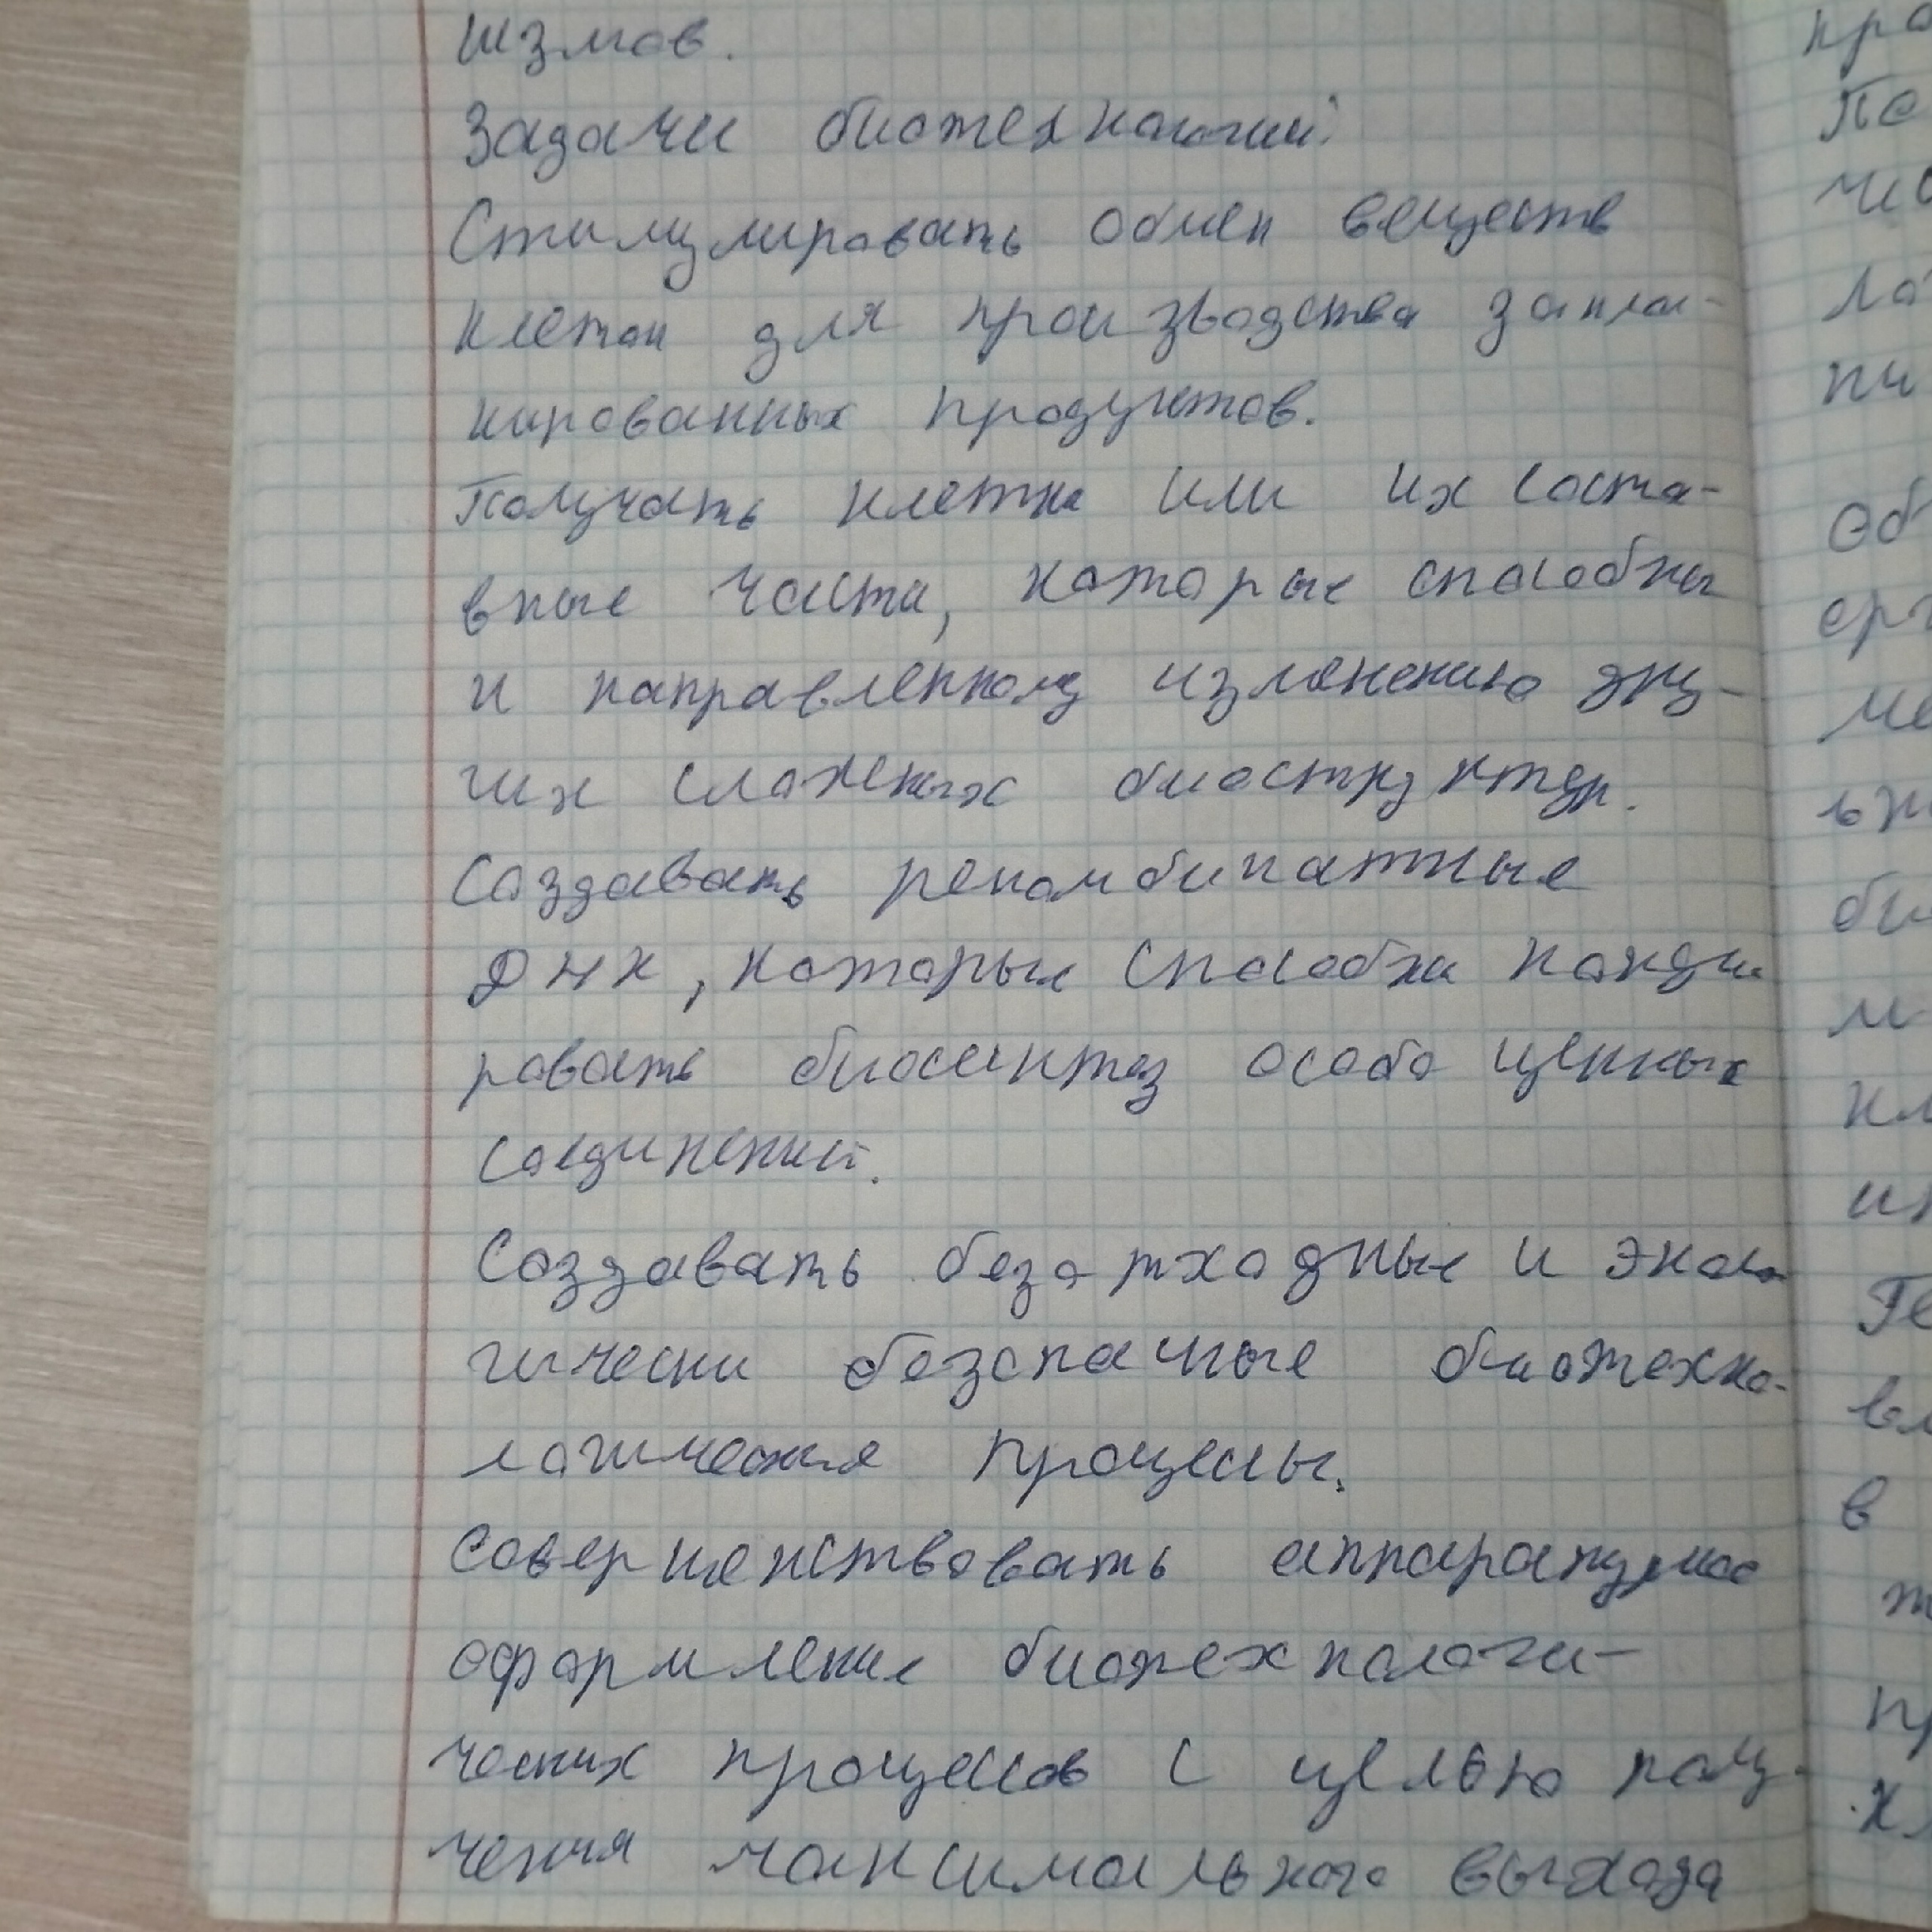 измов.
Задачи биотехнологий:
Стимулировать обмен веществ
клеток для производства запла-
нированных продуктов.
Получать клетки или их соста-
вные части, которые способны
к направленному изменению дру-
гих сложных биоструктур.
Создавать рекомбинатные
ДНК, которые способны кодди
ровать биосинтез особо ценных
соединений.
Создавать безотходные и эколо
гически безопасные биотехно-
логические процессы.
Совершенствовать аппаратурное
оформление биотехнологи-
ческих процессов с целью полу-
чения максимального выхода